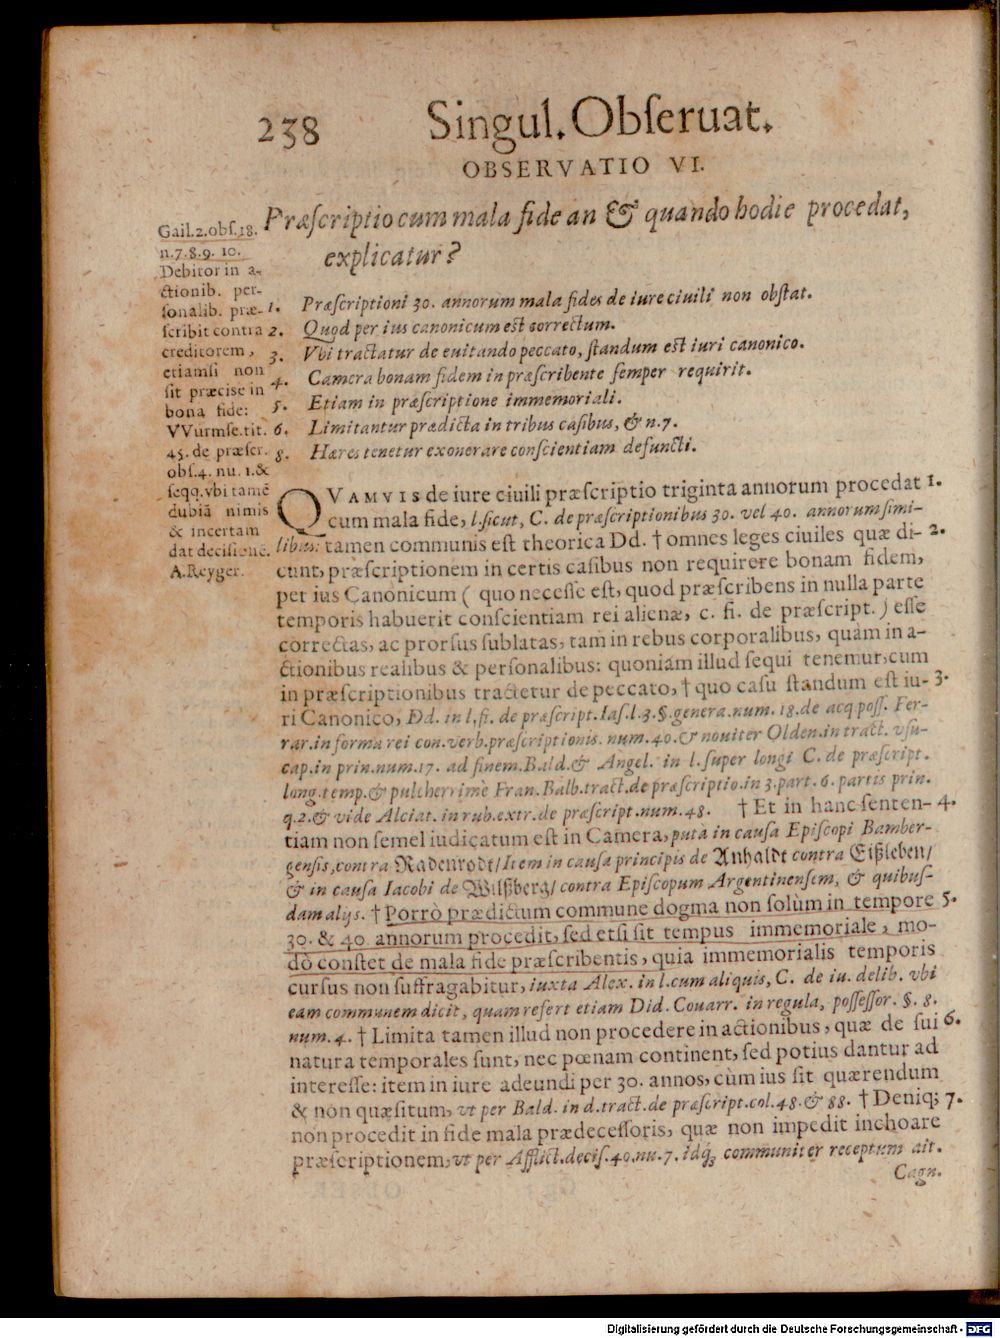 238 Singul. Obſeruat.
OBSERVATIO VI.
Præſcriptio cum mala fide an & quando hodie procedat,
explicatur?
Gail. 2. obſ. 18.
n. 7. 8. 9. 10.
Debitor in a-
ctionib. per-
ſonalib. præ-
ſcribit contra
creditorem,
etiamſi non
ſit præcise in
bona fide:
VVurmſe. tit.
45. de præſcr.
obſ. 4. nu. 1. &
ſeqq. vbi tamē
dubiā nimis
& incertam
dat deciſionē.
A. Reyger.
1. Præſcriptioni 30. annorum mala fides de iure ciuili non obſtat.
2. Quod per ius canonicum eſt correctum.
3. Vbi tractatur de euitando peccato, ſtandum eſt iuri canonico.
4. Camera bonam fidem in præſcribente ſemper requirit.
5. Etiam in præſcriptione immemoriali.
6. Limitantur prædicta in tribus caſibus, & n. 7.
8. Hæres tenetur exonerare conſcientiam defuncti.
QVAMVIS de iure ciuili præſcriptio triginta annorum procedat 1.
cum mala fide, l. ſicut, C. de præſcriptionibus 30. vel 40. annorum ſimi-
libus: tamen communis eſt theorica Dd. † omnes leges ciuiles quæ di- 2.
cunt, præſcriptionem in certis caſibus non requirere bonam fidem,
per ius Canonicum ( quo neceſſe eſt, quod præſcribens in nulla parte
temporis habuerit conſcientiam rei alienæ, c. fi. de præſcript. ) eſſe
correctas, ac prorſus ſublatas, tam in rebus corporalibus, quàm in a-
ctionibus realibus & perſonalibus: quoniam illud ſequi tenemur, cum
in præſcriptionibus tractetur de peccato, † quo caſu ſtandum eſt iu- 3.
ri Canonico, Dd. in l. fi. de præſcript. Iaſ. l. 3. §. genera. num. 18. de acq poſſ. Fer-
rar. in forma rei con. verb. præſcriptionis. num. 40. & nouiter Olden. in tract. vſu-
cap. in prin. num. 17. ad finem. Bald. & Angel. in l. ſuper longi C. de præſcript.
long. temp. & pulcherrime Fran. Balb. tract. de præſcriptio. in 3. part. 6. partis prin.
q. 2. & vide Alciat. in rub. extr. de præſcript. num. 48. † Et in hanc ſenten- 4.
tiam non ſemel iudicatum eſt in Camera, putà in cauſa Epiſcopi Bamber-
genſis, contra Radenrodt/ Item in cauſa principis de Anhaldt contra Eißleben/
& in cauſa Iacobi de Wilßberg/ contra Epiſcopum Argentinenſem, & quibuſ-
dam alijs. † Porrò prædictum commune dogma non ſolùm in tempore 5.
30. & 40. annorum procedit, ſed etſi ſit tempus immemoriale, mo-
dò conſtet de mala fide præſcribentis, quia immemorialis temporis
curſus non ſuffragabitur, iuxta Alex. in l. cum aliquis, C. de iu. delib. vbi
eam communem dicit, quam refert etiam Did. Couarr. in regula, poſſeſſor. §. 8.
num. 4. † Limita tamen illud non procedere in actionibus, quæ de ſui 6.
natura temporales ſunt, nec pœnam continent, ſed potius dantur ad
intereſſe: item in iure adeundi per 30. annos, cùm ius ſit quærendum
& non quæſitum, vt per Bald. in d. tract. de præſcript. col. 48. & 88. † Deniq; 7.
non procedit in fide mala prædeceſſoris, quæ non impedit inchoare
præſcriptionem, vt per Afflict. deciſ. 40. nu. 7. idq́; communiter receptum ait.
Cagn.
Digitalisierung gefördert durch die Deutsche Forschungsgemeinschaft - DFG